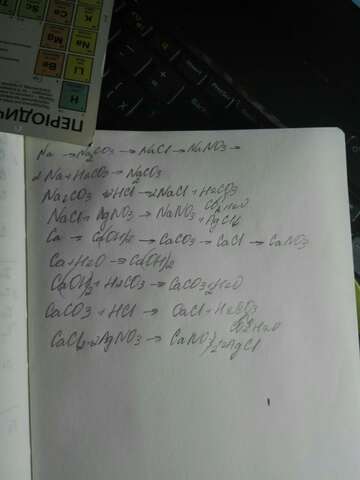 ПЕРІОДИЧ
H
Li
Be
Na
Mg
K
Ca
Sc
Ti
Na → Na2CO3 → NaCl → NaNO3 →
2Na + H2CO3 → Na2CO3
Na2CO3 + 2HCl → 2NaCl + H2CO3
CO2 H2O
NaCl + AgNO3 → NaNO3 + AgCl↓
Ca → Ca(OH)2 → CaCO3 → CaCl → CaNO3
Ca + H2O → Ca(OH)2
Ca(OH)2 + H2CO3 → CaCO3 + 2H2O
CaCO3 + HCl → CaCl + H2CO3
CO2 H2O
CaCl2 + 2AgNO3 → Ca(NO3)2 + 2AgCl